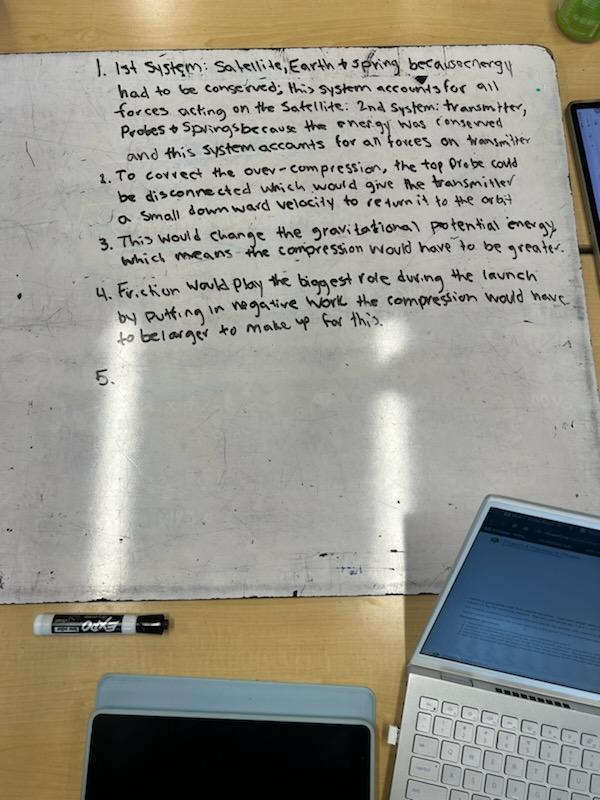 1. 1st System: Satellite, Earth + spring because energy
had to be conserved; this system accounts for all
forces acting on the Satellite. 2nd System: transmitter,
Probes + Springs because the energy was conserved
and this system accounts for all forces on transmitter
2. To correct the over-compression, the top Probe could
be disconnected which would give the transmitter
a small downward velocity to return it to the orbit
3. This would change the gravitational potential energy,
which means the compression would have to be greater.
4. Friction would play the biggest role during the launch
by putting in negative work the compression would have
to be larger to make up for this.
5.
EXPO